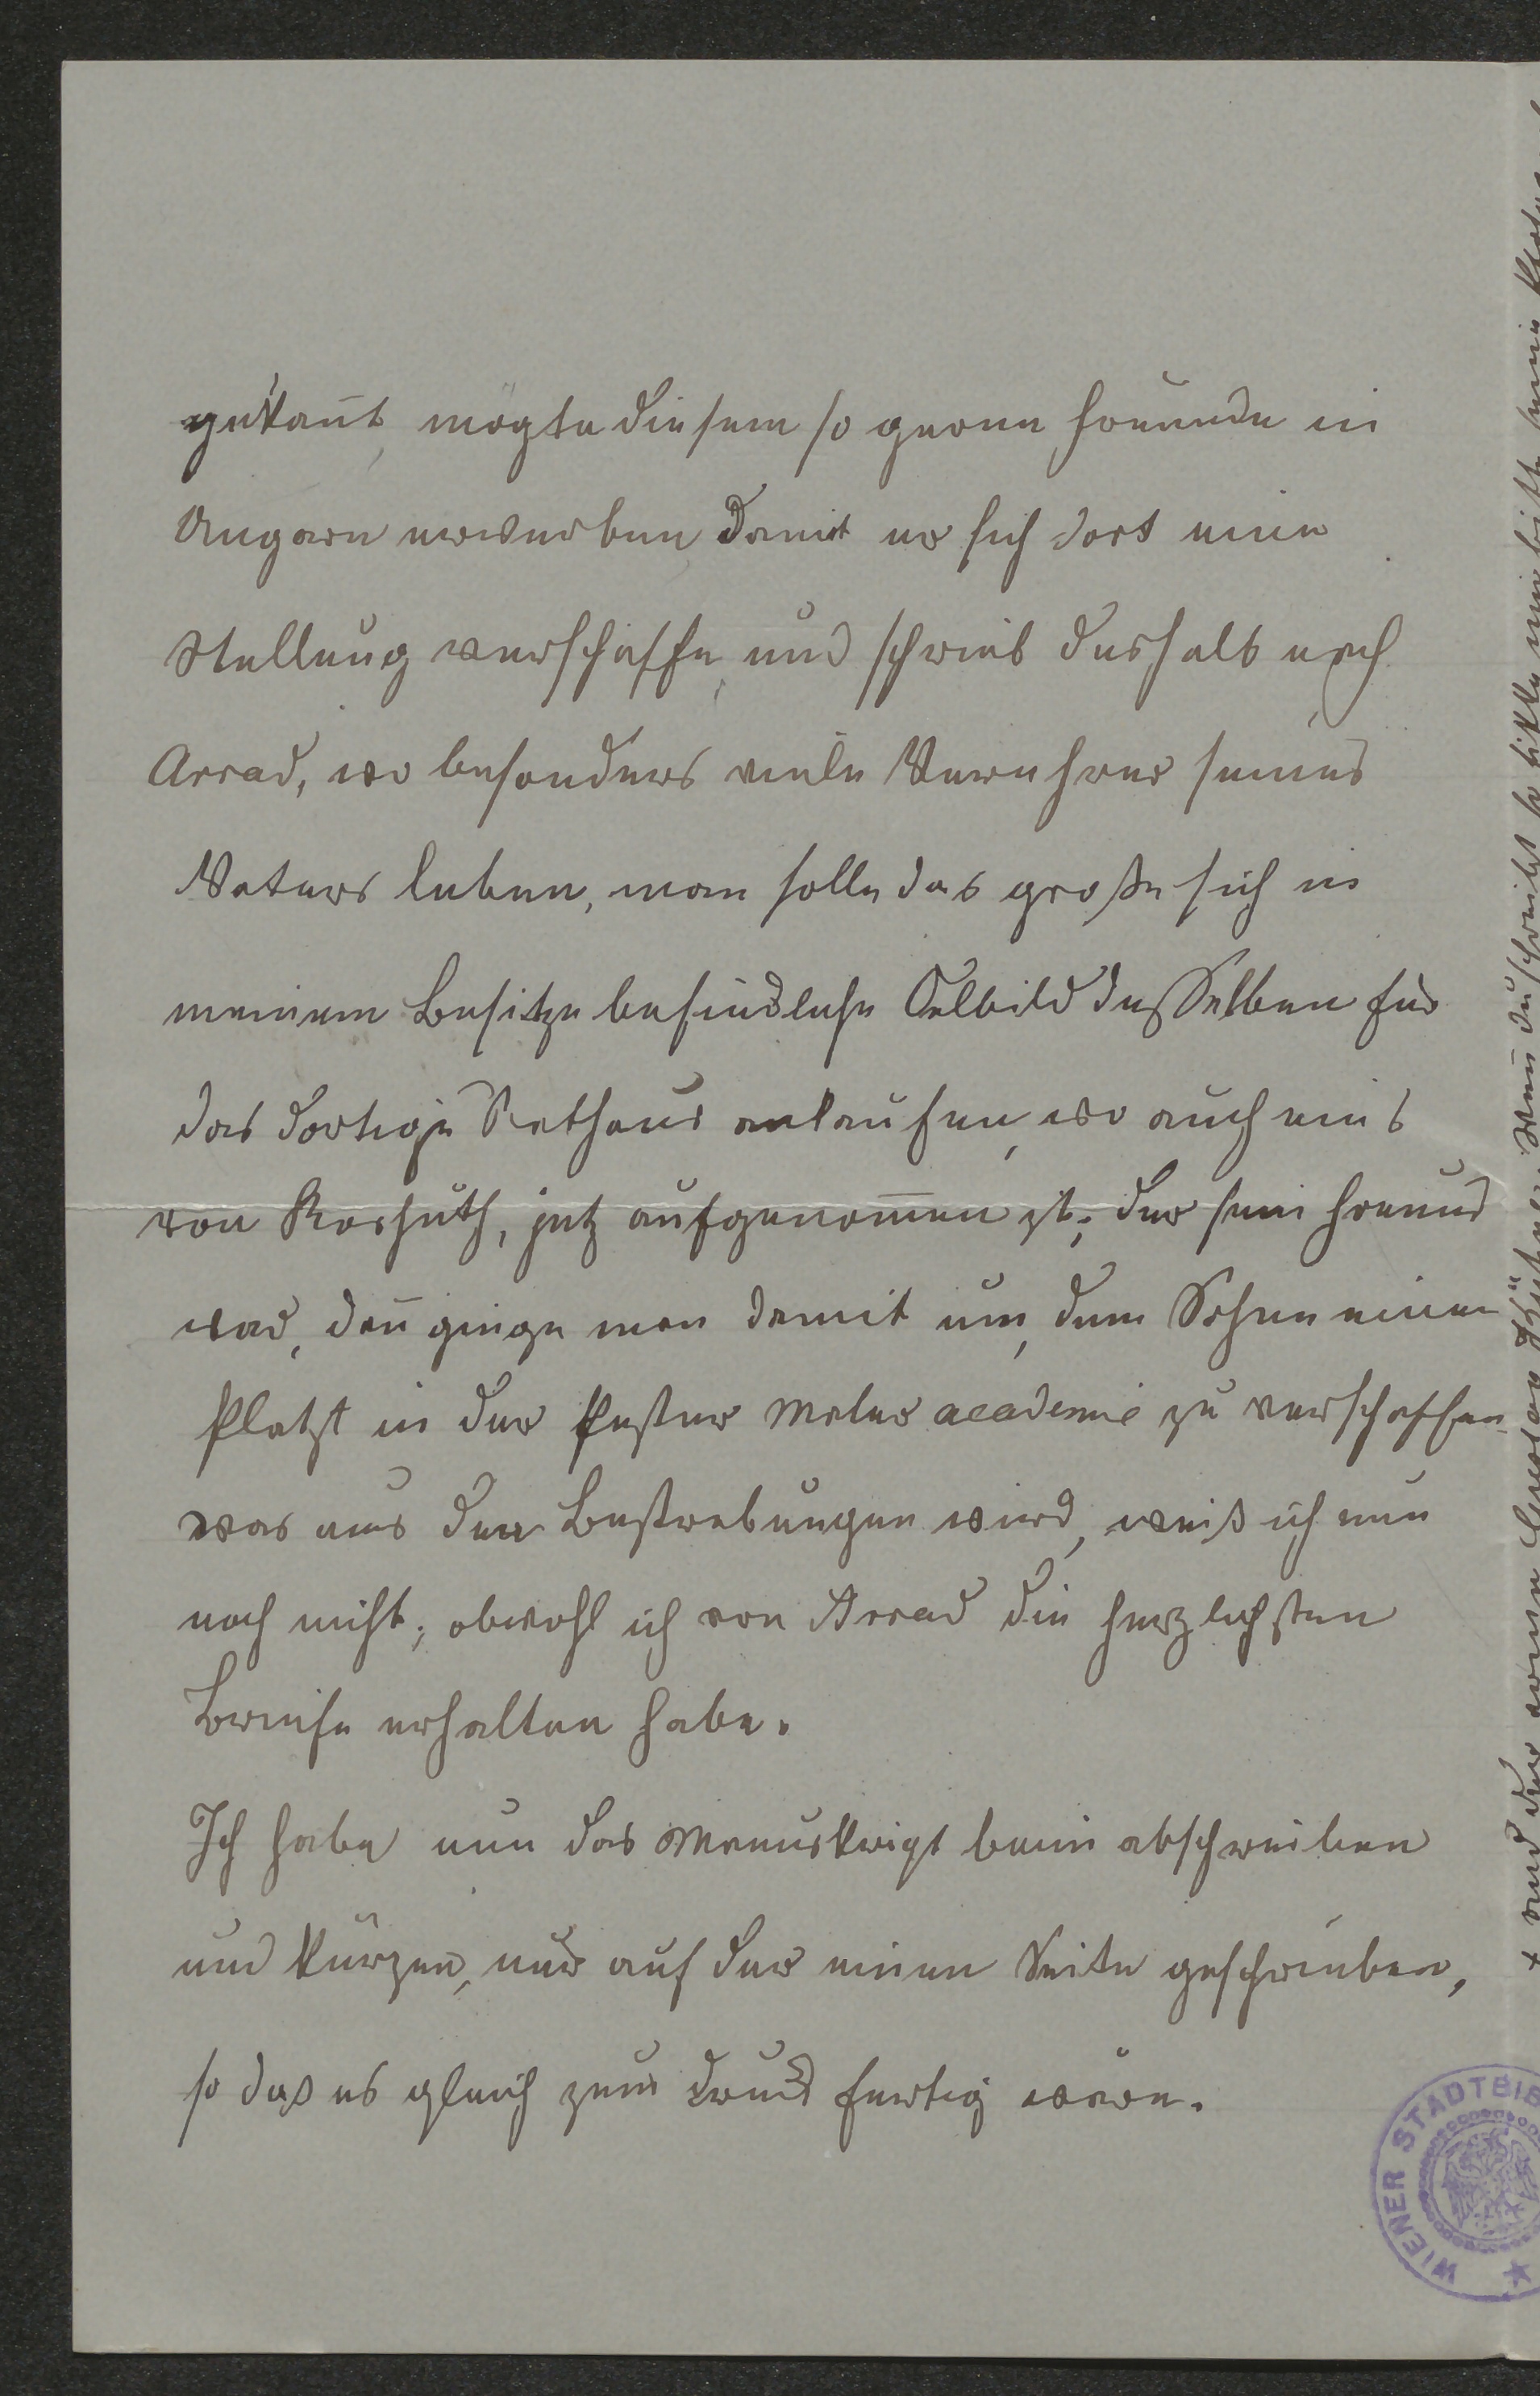 gekan̄t, mögte diesem so gerne Freunde in
Ungarn erwerben, damit er sich dort eine
Stellung verschaffe, und schrieb deshalb nach
Arrad, wo besonders viele Verehrer seines
Vaters leben, man solle das große sich in
meinem Besitze befindliche Oelbild desselben für
das dortige Rathaus ankaufen, wo auch eins
von Koshuth, jetz aufgenom̄en ist, der sein Freund
war, den̄ ginge man damit um, dem Sohne einen
Platzt in der Pester Maler academie zu verschaffen
was aus den Bestrebungen wird, weiß ich nun
noch nicht; obwohl ich von Arrad die herzlichsten
Briefe erhalten habe.
Ich habe nun das Manuskript beim abschreiben
und kürzen, nur auf der einen Seite geschrieben,
so daß es gleich zum Druck fertig wäre.
+ und der armen
Wen̄ du schreibst so bitte
WIENER STADTBIB